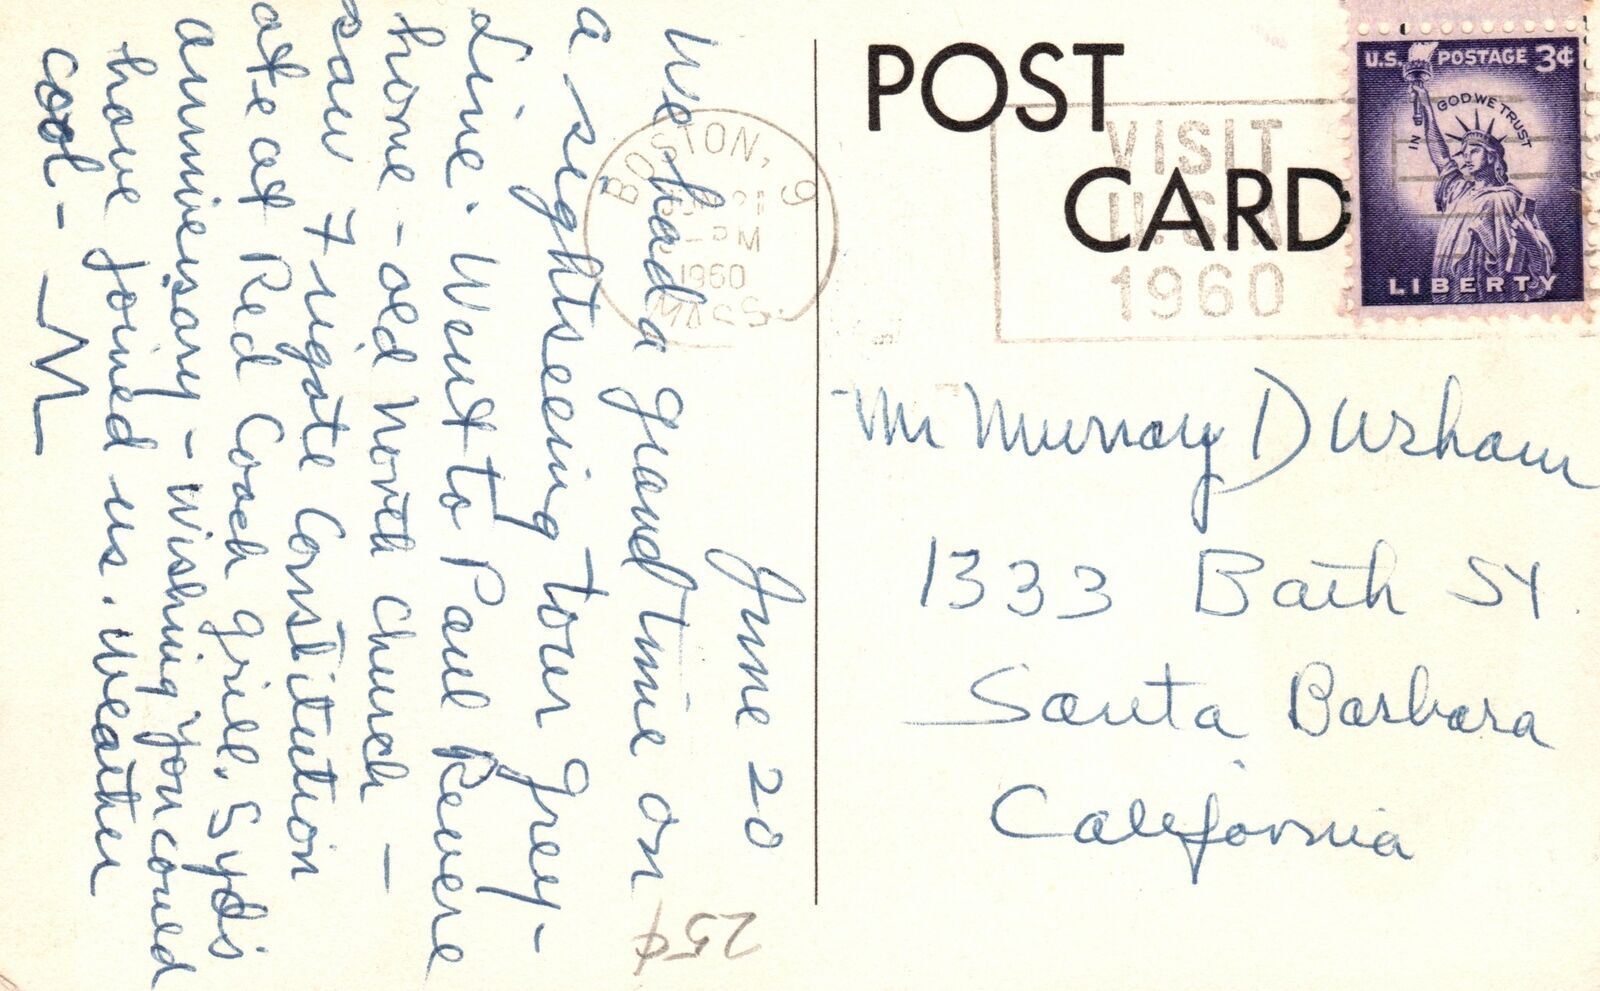 June 20
We had a grand time on
a sightseeing tour grey-
line. Went to Paul Revere
home - old North Church -
saw Frigate Constitution
ate at Red Coach grill. Syd's
anniversary - wishing you could
have joined us. Weather
cool - M
25¢
POST
CARD
BOSTON, 9
PM
1960
MASS.
VISIT
U.S.A
1960
U.S. POSTAGE 3¢
IN GOD WE TRUST
LIBERTY
Mr Murray Durham
1333 Bath St.
Santa Barbara
California